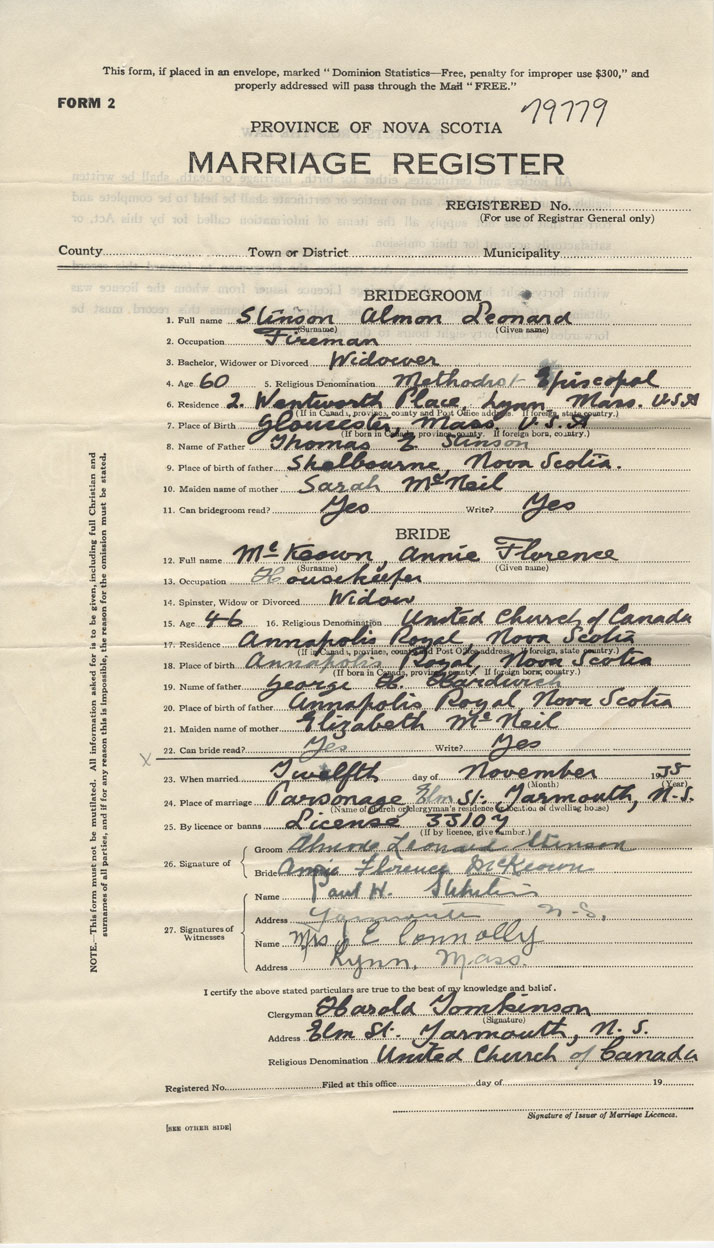 This form, if placed in an envelope, marked "Dominion Statistics—Free, penalty for improper use $300," and
properly addressed will pass through the Mail "FREE."
FORM 2
79779
PROVINCE OF NOVA SCOTIA
MARRIAGE REGISTER
REGISTERED No.
(For use of Registrar General only)
County Town or District Municipality
BRIDEGROOM
1. Full name Stinson Almon Leonard
(Surname) (Given name)
2. Occupation Fireman
3. Bachelor, Widower or Divorced Widower
4. Age 60 5. Religious Denomination Methodist Episcopal
6. Residence 2. Wentworth Place, Lynn, Mass. U.S.A
(If in Canada, province, county and Post Office address. If foreign, state country.)
7. Place of Birth Gloucester, Mass. U.S.A
(If born in Canada, province, county. If foreign born, country.)
8. Name of Father Thomas E Stinson
9. Place of birth of father Shelbourne, Nova Scotia.
10. Maiden name of mother Sarah McNeil
11. Can bridegroom read? Yes Write? Yes
BRIDE
12. Full name McKeown, Annie Florence
(Surname) (Given name)
13. Occupation Housekeeper
14. Spinster, Widow or Divorced Widow
15. Age 46 16. Religious Denomination United Church of Canada
17. Residence Annapolis Royal, Nova Scotia
(If in Canada, province, county and Post Office address, if foreign, state country.)
18. Place of birth Annapolis Royal, Nova Scotia
(If born in Canada, province, county. If foreign born, country.)
19. Name of father George H. Hardwick
20. Place of birth of father Annapolis Royal, Nova Scotia
21. Maiden name of mother Elizabeth McNeil
22. Can bride read? Yes Write? Yes
X
23. When married Twelfth day of November 1935
(Month) (Year)
24. Place of marriage Parsonage Elm St. Yarmouth, N.S.
(Name of church or clergyman's residence or location of dwelling house)
25. By licence or banns License 33107
(If by licence, give number.)
26. Signature of
Groom Almond Leonard Stinson
Bride Annie Florence McKeown
27. Signatures of
Witnesses
Name Paul H.
Address Yarmouth N.S.
Name Mrs J E Connolly
Address Lynn, Mass.
I certify the above stated particulars are true to the best of my knowledge and belief.
Clergyman Harold Tomkinson
(Signature)
Address Elm St. Yarmouth, N.S.
Religious Denomination United Church of Canada
Registered No. Filed at this office day of 19
Signature of Issuer of Marriage Licences.
[SEE OTHER SIDE]
NOTE.—This form must not be mutilated. All information asked for is to be given, including full Christian and
surnames of all parties, and if for any reason this is impossible, the reason for the omission must be stated.